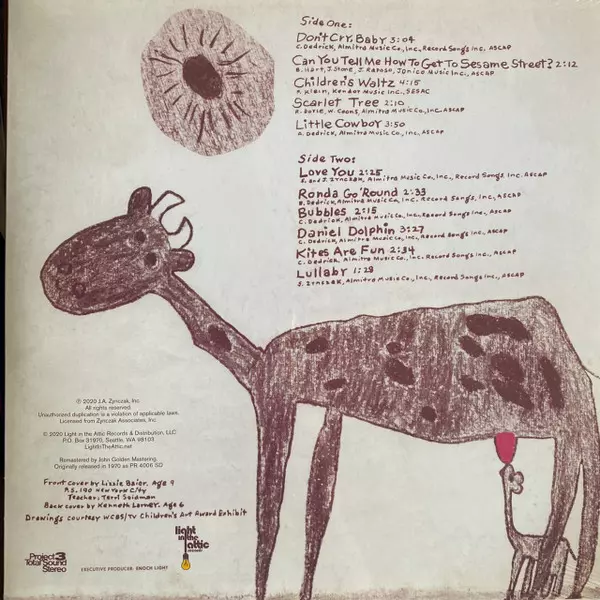 Side One:
Don't Cry, Baby 3:04
C. Dedrick, Almitra Music Co., Inc., Record Songs Inc. ASCAP
Can You Tell Me How To Get To Sesame Street? 2:12
B. Hart, J. Stone, J. Raposo, Jonico Music Inc., ASCAP
Children's Waltz 4:15
P. Klein, Kendor Music Inc., SESAC
Scarlet Tree 2:10
W. Coons, Almitra Music Co., Inc. ASCAP
Little Cowboy 3:50
A. Dedrick, Almitra Music Co., Inc. ASCAP
Side Two:
Love You 2:25
S. and J. Zynczak, Almitra Music Co., Inc., Record Songs Inc. ASCAP
Ronda Go 'Round 2:33
B. Dedrick, Almitra Music Co., Inc., Record Songs, Inc., ASCAP
Bubbles 2:15
C. Dedrick, Almitra Music Co., Inc., Record Songs Inc. ASCAP
Daniel Dolphin 3:27
C. Dedrick, Almitra Music Co., Inc., Record Songs Inc. ASCAP
Kites Are Fun 2:34
C. Dedrick, Almitra Music Co., Inc. Record Songs Inc. ASCAP
Lullaby 1:28
S. Zynczak, Almitra Music Co., Inc., Record Songs Inc., ASCAP
℗ 2020 J.A. Zynczak, Inc
All rights reserved.
Unauthorized duplication is a violation of applicable laws.
Licensed from Zynczak Associates, Inc.
© 2020 Light in the Attic Records & Distribution, LLC
P.O. Box 31970, Seattle, WA 98103
LightInTheAttic.net
Remastered by John Golden Mastering.
Originally released in 1970 as PR 4006 SD
Front cover by Lizzie Baier, Age 9
P.S. 190 New York City
Teacher: Terri Soloman
Back cover by Kenneth Lerner, Age 6
Drawings courtesy WCBS/TV Children's Art Award Exhibit
Project 3
Total Sound
Stereo
EXECUTIVE PRODUCER: ENOCH LIGHT
light
in the
attic